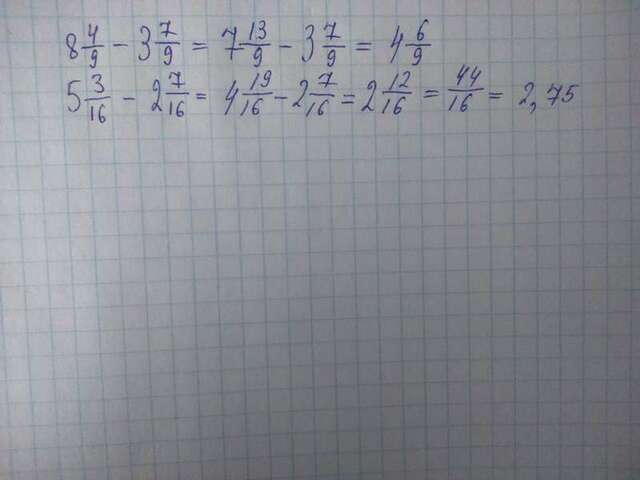 8 4/9 − 3 7/9 = 7 13/9 − 3 7/9 = 4 6/9
5 3/16 − 2 7/16 = 4 19/16 − 2 7/16 = 2 12/16 = 44/16 = 2,75